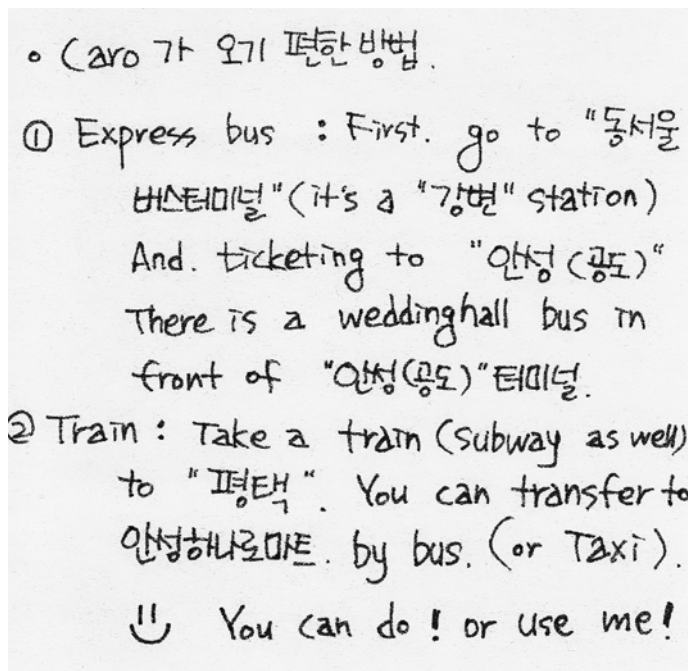 • Caro가 오기 편한 방법.
① Express bus : First. go to "동서울
버스터미널" (it's a "강변" station)
And. ticketing to "안성 (공도)"
There is a weddinghall bus in
front of "안성(공도)" 터미널.
② Train : Take a train (subway as well)
to "평택". You can transfer to
안성하나로마트. by bus. (or Taxi).
You can do! or use me!